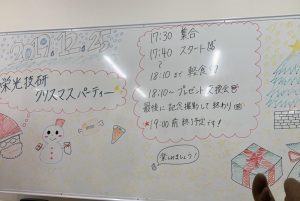 2019.12.25
栄光技研
クリスマスパーティー
17:30 集合
17:40 スタート
〜
18:10まで 軽食
18:10〜 プレゼント交換会
最後に記念撮影して終わり
*19:00前終了予定です!
楽しみましょう!